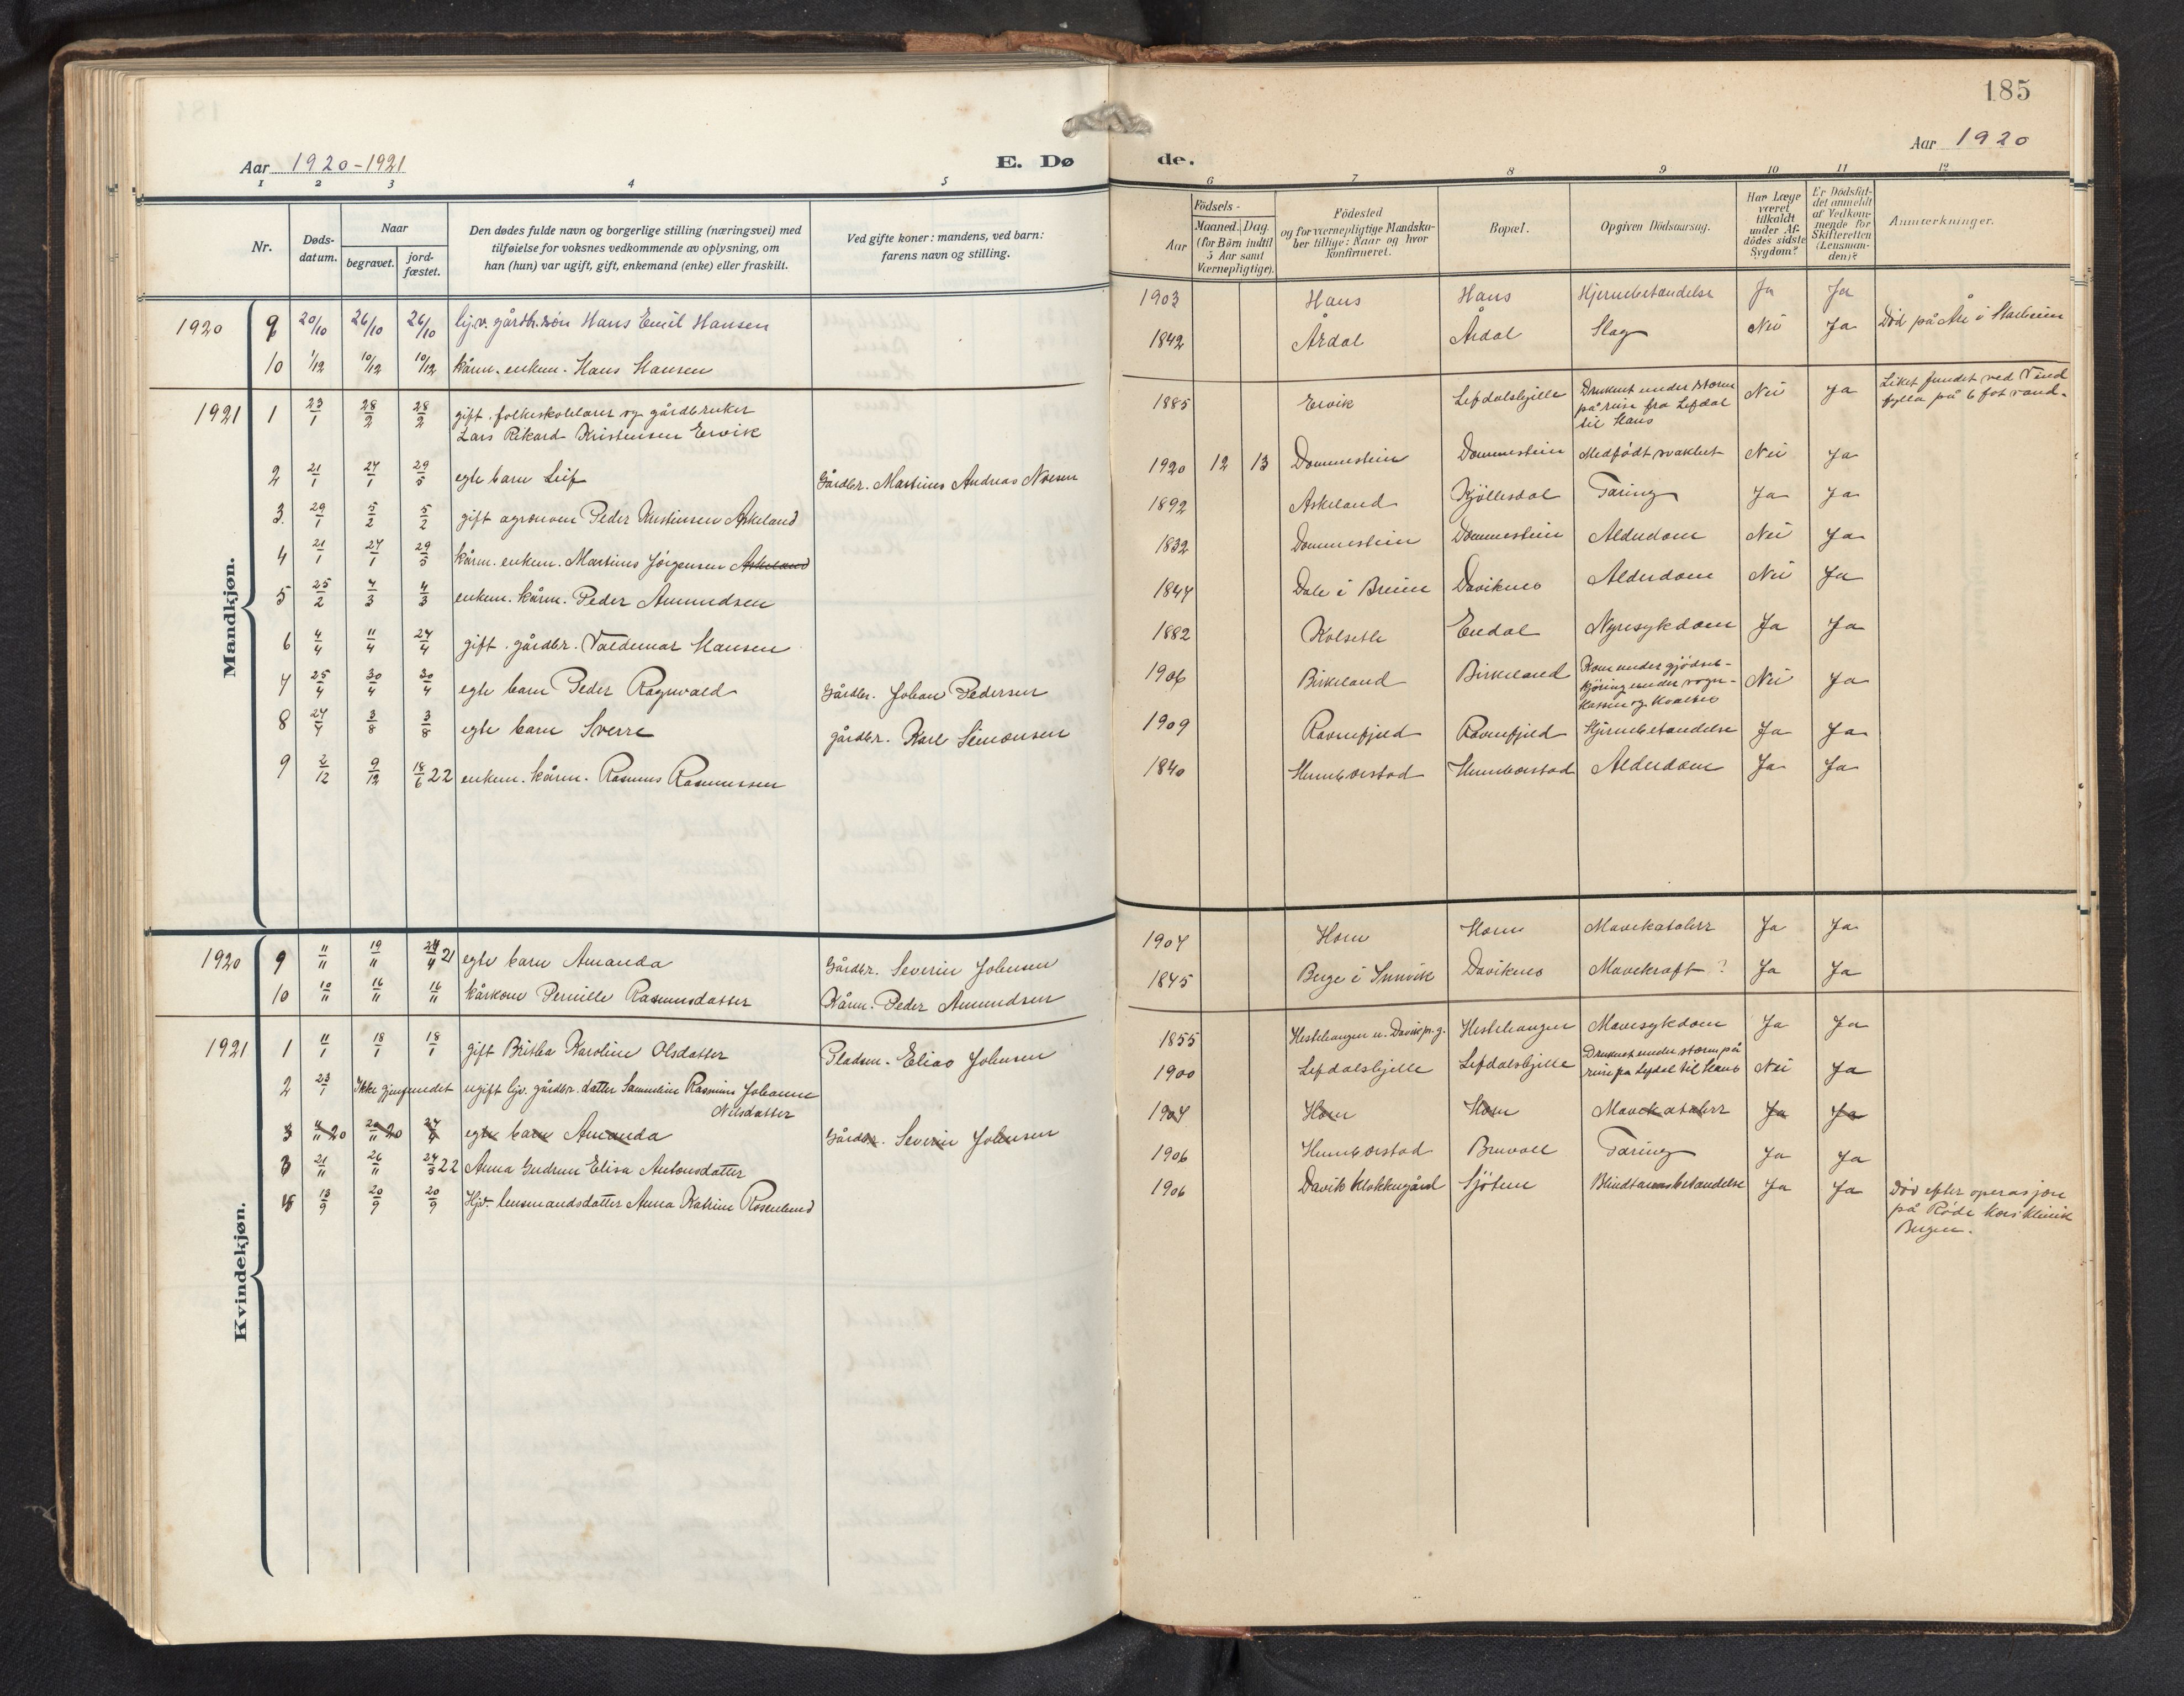 185
Aar 1920-1921
E. Dø
de.
Aar 1920
1 2 3 4 5
6 7 8 9 10 11 12
Nr.
Døds-
datum.
Naar
begravet.
jord-
fæstet.
Den dødes fulde navn og borgerlige stilling (næringsvei) med
tilføielse for voksnes vedkommende av oplysning, om
han (hun) var ugift, gift, enkemand (enke) eller fraskilt.
Ved gifte koner: mandens, ved barn:
farens navn og stilling.
Födsels-
Aar
Maaned. Dag.
(for Börn indtil
5 Aar samt
Værnepligtige).
Födested
og for værnepligtige Mandska-
ber tillige: Naar og hvor
konfirmeret.
Bopæl.
Opgiven Dödsaarsag.
Har Læge
været
tilkaldt
under Af-
dödes sidste
Sygdom?
Er Dödsfal-
det anmeldt
af Vedkom-
mende for
Skifteretten
(Lensman-
den)?
Anmærkninger.
Mandkjøn.
1920 9 20/10 26/10 26/10 hj.v. gårdbr.søn Hans Emil Hansen 1903 Haus Haus Hjernebetændelse Ja Ja
10 1/12 10/12 10/12 kårm. enkem. Hans Hansen 1842 Årdal Årdal Slag Nei Ja Död på Åre i Starheim
1921 1 23/1 28/2 28/2 gift. folkeskolelærer og gårdbruker
Lars Rikard Kristensen Ervik 1885 Ervik Lefdalshjelle Druknet under storm
på reise fra Lefdal
til Haus Nei Ja Liket fundet ved Vind
fylla på 6 fot vand.
2 21/1 27/1 29/5 egte barn Leif Gårdbr. Martinus Andreas Nesen 1920 12 13 Dommestein Dommestein Medfödt svakhet Nei Ja
3. 29/1 5/2 5/2 gift agronom Peder Kristensen Askeland 1892 Askeland Kjöllesdal Tæring Ja Ja
4 21/1 27/1 29/5 kårm. enkem. Martinus Jörgensen Askeland 1832 Dommestein Dommestein Alderdom Nei Ja
5 25/2 4/3 4/3 enkem. kårm. Peder Amundsen 1847 Dale i Breim Daviknes Alderdom Nei Ja
6 4/4 11/4 24/4 gift. gårdbr. Valdemar Hansen 1882 Kolseth Endal Nyresykdom Ja Ja
7 25/4 30/4 30/4 egte barn Peder Ragnvald Gårdbr. Johan Pedersen 1906 Birkeland Birkeland Kom under gjödsel-
kjöring under vogn-
kassen og kvaltes Nei Ja
8 27/7 3/8 3/8 egte barn Sverre gårdbr. Karl Simonsen 1909 Ravnefjeld Ravnefjeld Hjernebetændelse Ja Ja
9 2/12 9/12 18/6 22 enkem. kårm. Rasmus Rasmussen 1840 Humborstad Humborstad Alderdom Ja Ja
Kvindekjøn.
1920 9 11/11 19/11 24/4 21 egte barn Amanda Gårdbr. Severin Johnsen 1907 Horn Horn Mavekatahrr Ja Ja
10 10/11 16/11 16/11 kårkone Pernille Rasmusdatter Kårm. Peder Amundsen 1845 Berge i Innvik Daviknes Mavekræft? Ja Ja
1921 1 11/1 18/1 18/1 gift Britha Karoline Olsdatter Pladsm. Elias Johnsen 1855 Hestehaugen u. Davik pr.g. Hestehaugen Mavesykdom Ja Ja
2 23/1 Ikke gjenfundet ugift hjv. gårdbr. datter Samueline Rasmine Johanne
Nilsdatter 1900 Lefdalshjelle Lefdalshjelle Druknet under storm på
reise fra Lefdal til Haus Nei Ja
3 11/11 20 20/11 20 24/4 egte barn Amanda Gårdbr. Severin Johnsen 1907 Horn Horn Mavekatahrr Ja Ja
3 21/11 26/11 24/5 22 Anna Gudrun Elisa Antonsdatter 1906 Humborstad Bruvoll Tæring Ja Ja
4 13/9 20/9 20/9 Hjv. lensmandsdatter Anna Katrine Rosenlund 1906 Davik klokkergård Sjötun Blindtarmsbetændelse Ja Ja Död efter operasjon
på Röde Kors Klinik
Bergen.